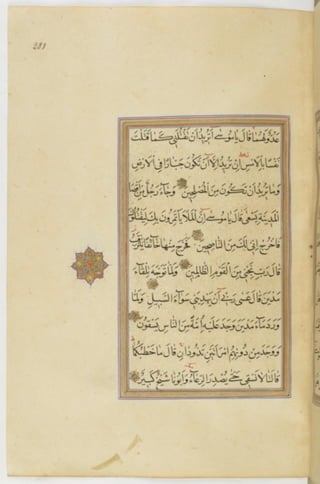 عَدُوٌّ لَهُمَا قَالَ يَا مُوسَى أَتُرِيدُ أَنْ تَقْتُلَنِي كَمَا قَتَلْتَ
نَفْسًا بِالْأَمْسِ إِنْ تُرِيدُ إِلَّا أَنْ تَكُونَ جَبَّارًا فِي الْأَرْضِ
وَمَا تُرِيدُ أَنْ تَكُونَ مِنَ الْمُصْلِحِينَ وَجَاءَ رَجُلٌ مِنْ أَقْصَا
الْمَدِينَةِ يَسْعَى قَالَ يَا مُوسَى إِنَّ الْمَلَأَ يَأْتَمِرُونَ بِكَ لِيَقْتُلُوكَ
فَاخْرُجْ إِنِّي لَكَ مِنَ النَّاصِحِينَ فَخَرَجَ مِنْهَا خَائِفًا يَتَرَقَّبُ
قَالَ رَبِّ نَجِّنِي مِنَ الْقَوْمِ الظَّالِمِينَ وَلَمَّا تَوَجَّهَ تِلْقَاءَ
مَدْيَنَ قَالَ عَسَى رَبِّي أَنْ يَهْدِيَنِي سَوَاءَ السَّبِيلِ وَلَمَّا
وَرَدَ مَاءَ مَدْيَنَ وَجَدَ عَلَيْهِ أُمَّةً مِنَ النَّاسِ يَسْقُونَ
وَوَجَدَ مِنْ دُونِهِمُ امْرَأَتَيْنِ تَذُودَانِ قَالَ مَا خَطْبُكُمَا
قَالَتَا لَا نَسْقِي حَتَّى يُصْدِرَ الرِّعَاءُ وَأَبُونَا شَيْخٌ كَبِيرٌ